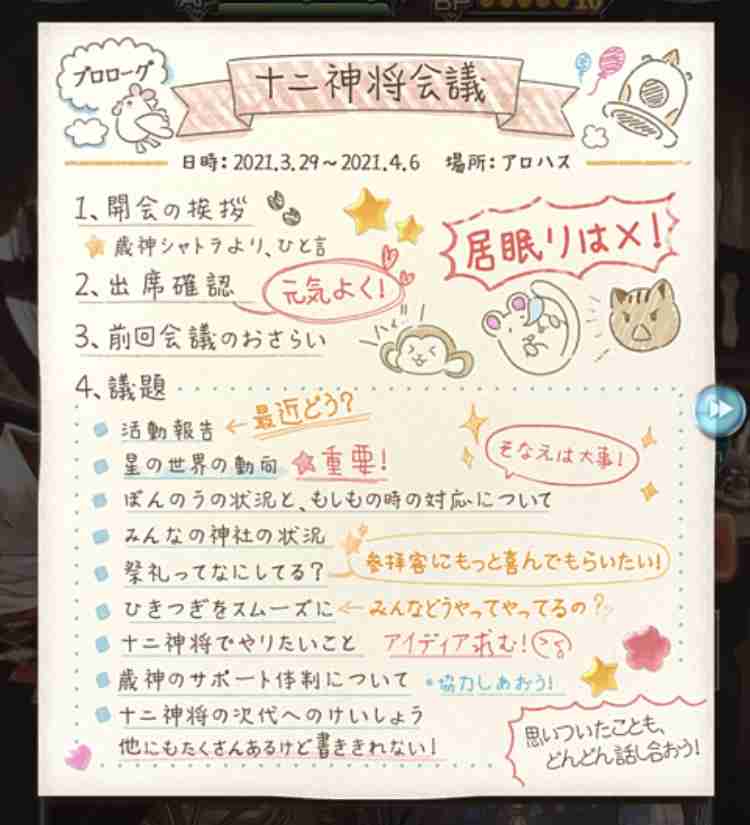 プロローグ
十二神将会議
日時：2021.3.29～2021.4.6 場所：アロハス
1、開会の挨拶
歳神シャトラより、ひと言
居眠りは×！
2、出席確認
元気よく！
3、前回会議のおさらい
4、議題
活動報告 ← 最近どう？
星の世界の動向 ★重要！
そなえは大事！
ぼんのうの状況と、もしもの時の対応について
みんなの神社の状況
祭礼ってなにしてる？
参拝客にもっと喜んでもらいたい！
ひきつぎをスムーズに ← みんなどうやってやってるの？
十二神将でやりたいこと アイディア求む！
歳神のサポート体制について •協力しあおう！
十二神将の次代へのけいしょう
他にもたくさんあるけど書ききれない！
思いついたことも、
どんどん話し合おう！